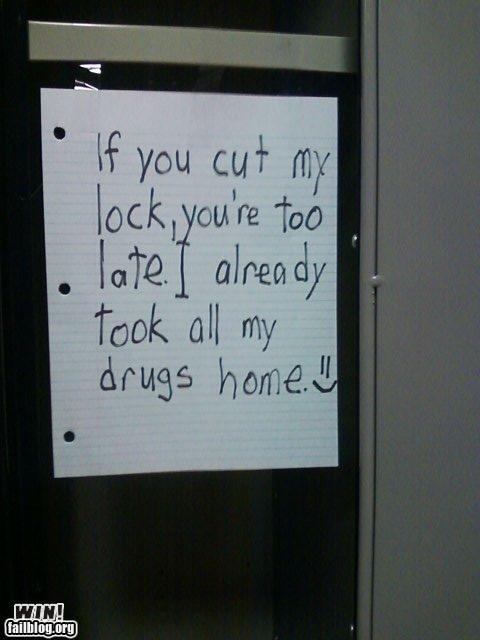 If you cut my
lock, you're too
late. I already
took all my
drugs home.
WIN!
failblog.org